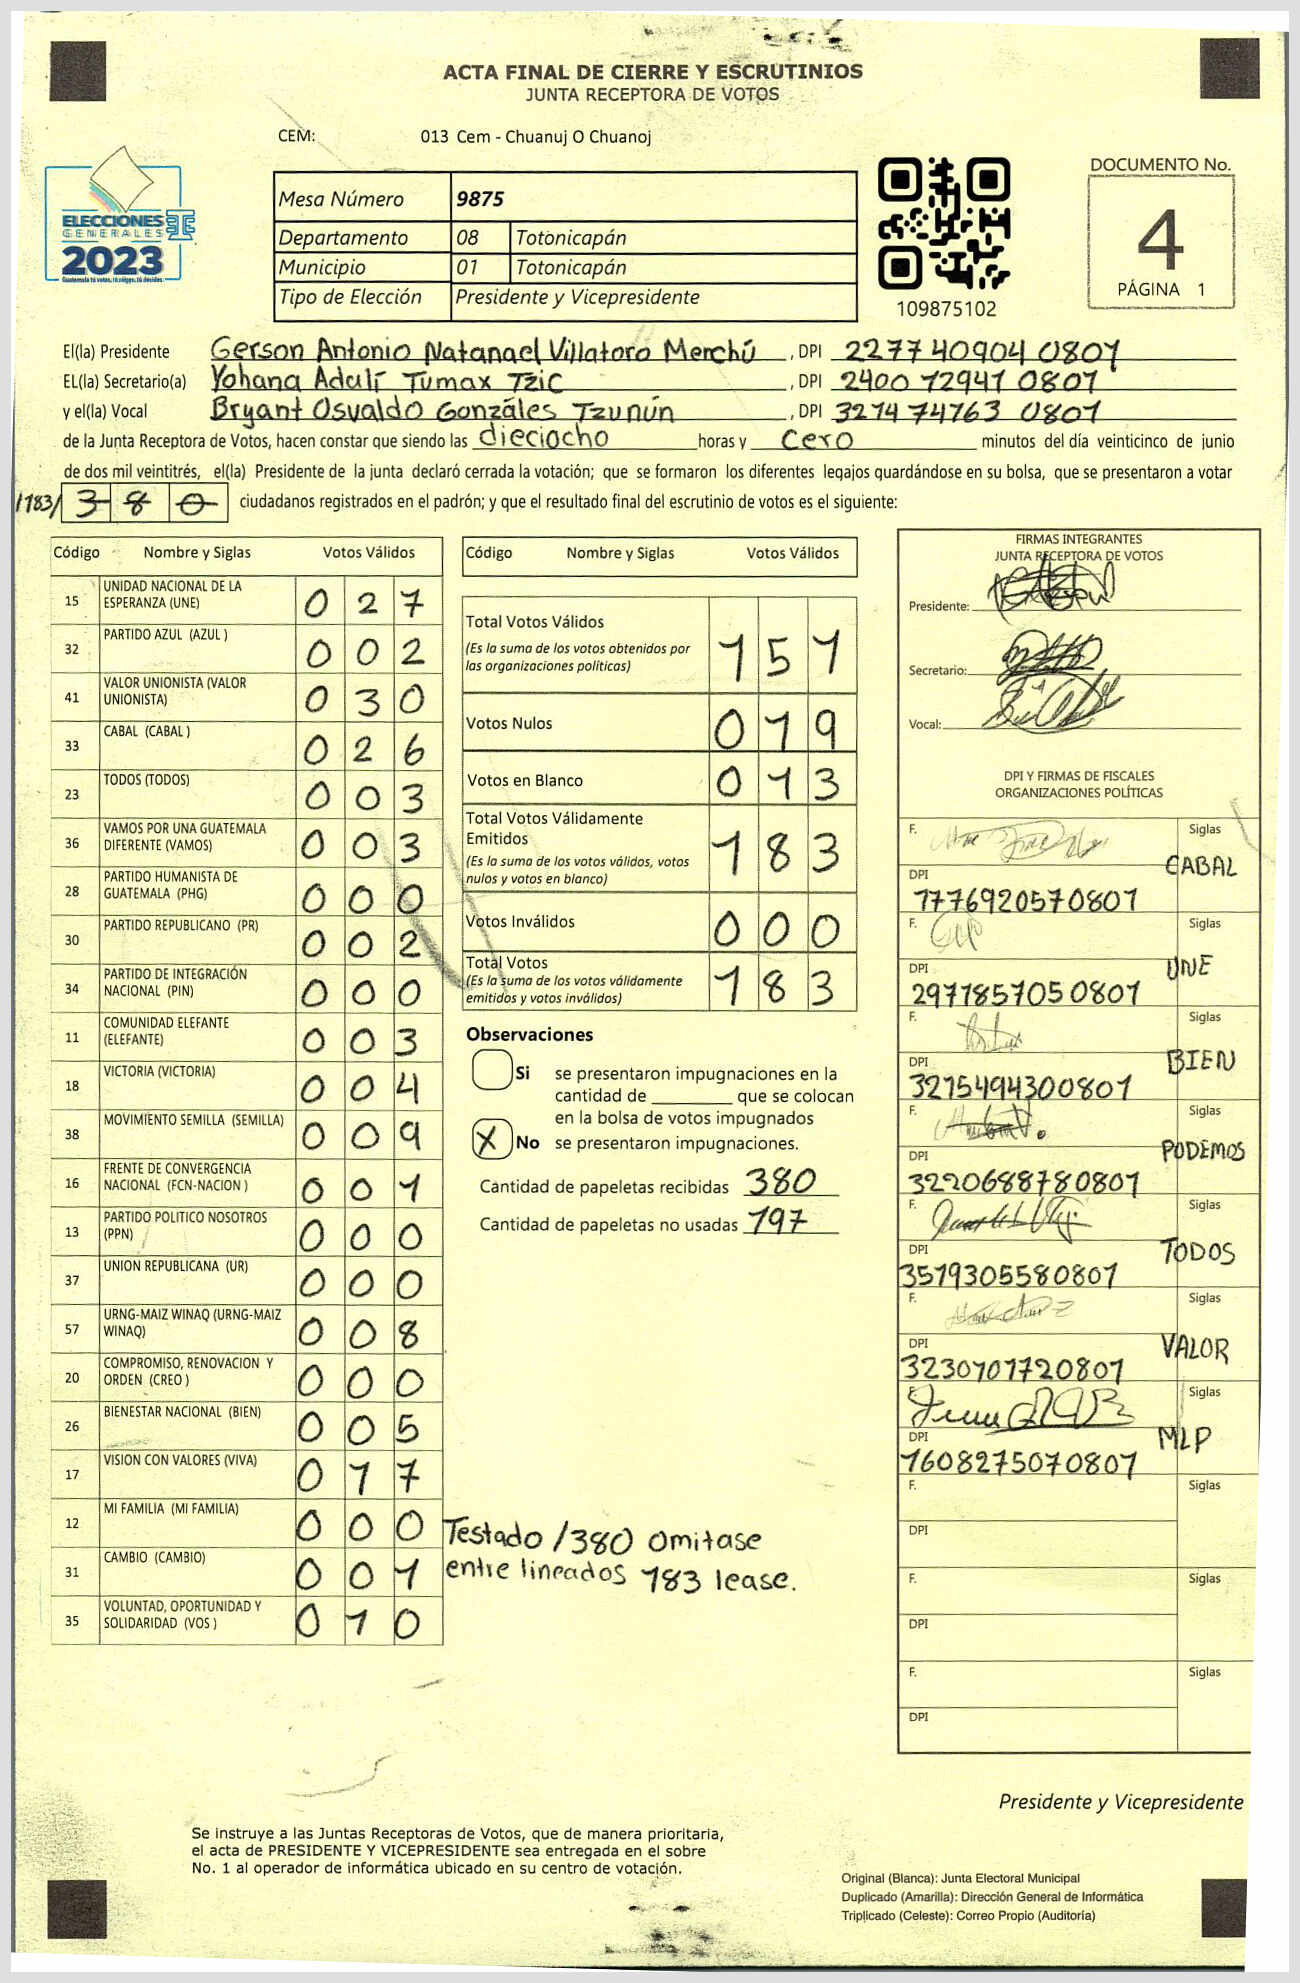 ACTA FINAL DE CIERRE Y ESCRUTINIOS
JUNTA RECEPTORA DE VOTOS
CEM: 013 Cem - Chuanuj O Chuanoj
ELECCIONES
GENERALES
2023
Guatemala tú votas, tú eliges, tú decides
Mesa Número 9875
Departamento 08 Totonicapán
Municipio 01 Totonicapán
Tipo de Elección Presidente y Vicepresidente
109875102
DOCUMENTO No.
4
PÁGINA 1
El(la) Presidente Gerson Antonio Natanael Villatoro Merchú, DPI 2277 40904 0801
EL(la) Secretario(a) Yohana Adalí Tumax Tzic, DPI 2400 72941 0801
y el(la) Vocal Bryant Osvaldo Gonzáles Tzunún, DPI 3214 74763 0801
de la Junta Receptora de Votos, hacen constar que siendo las dieciocho horas y cero minutos del día veinticinco de junio
de dos mil veintitrés, el(la) Presidente de la junta declaró cerrada la votación; que se formaron los diferentes legajos guardándose en su bolsa, que se presentaron a votar
183/ 3 8 0 ciudadanos registrados en el padrón; y que el resultado final del escrutinio de votos es el siguiente:
Código Nombre y Siglas Votos Válidos
15 UNIDAD NACIONAL DE LA ESPERANZA (UNE) 0 2 7
32 PARTIDO AZUL (AZUL ) 0 0 2
41 VALOR UNIONISTA (VALOR UNIONISTA) 0 3 0
33 CABAL (CABAL ) 0 2 6
23 TODOS (TODOS) 0 0 3
36 VAMOS POR UNA GUATEMALA DIFERENTE (VAMOS) 0 0 3
28 PARTIDO HUMANISTA DE GUATEMALA (PHG) 0 0 0
30 PARTIDO REPUBLICANO (PR) 0 0 2
34 PARTIDO DE INTEGRACIÓN NACIONAL (PIN) 0 0 0
11 COMUNIDAD ELEFANTE (ELEFANTE) 0 0 3
18 VICTORIA (VICTORIA) 0 0 4
38 MOVIMIENTO SEMILLA (SEMILLA) 0 0 9
16 FRENTE DE CONVERGENCIA NACIONAL (FCN-NACION ) 0 0 1
13 PARTIDO POLITICO NOSOTROS (PPN) 0 0 0
37 UNION REPUBLICANA (UR) 0 0 0
57 URNG-MAIZ WINAQ (URNG-MAIZ WINAQ) 0 0 8
20 COMPROMISO, RENOVACION Y ORDEN (CREO ) 0 0 0
26 BIENESTAR NACIONAL (BIEN) 0 0 5
17 VISION CON VALORES (VIVA) 0 1 7
12 MI FAMILIA (MI FAMILIA) 0 0 0
31 CAMBIO (CAMBIO) 0 0 1
35 VOLUNTAD, OPORTUNIDAD Y SOLIDARIDAD (VOS ) 0 1 0
Código Nombre y Siglas Votos Válidos
Total Votos Válidos 1 5 1
(Es la suma de los votos obtenidos por
las organizaciones políticas)
Votos Nulos 0 1 9
Votos en Blanco 0 1 3
Total Votos Válidamente
Emitidos 1 8 3
(Es la suma de los votos válidos, votos
nulos y votos en blanco)
Votos Inválidos 0 0 0
Total Votos 1 8 3
(Es la suma de los votos válidamente
emitidos y votos inválidos)
Observaciones
Si se presentaron impugnaciones en la
cantidad de ________ que se colocan
en la bolsa de votos impugnados
X No se presentaron impugnaciones.
Cantidad de papeletas recibidas 380
Cantidad de papeletas no usadas 197
Testado /380 Omitase
entre lineados 183 lease.
FIRMAS INTEGRANTES
JUNTA RECEPTORA DE VOTOS
Presidente:
Secretario:
Vocal:
DPI Y FIRMAS DE FISCALES
ORGANIZACIONES POLÍTICAS
F. Siglas
CABAL
DPI
1776920570801
F. Siglas
UNE
DPI
2971857050801
F. Siglas
BIEN
DPI
3215494300801
F. Siglas
PODEMOS
DPI
3220688780801
F. Siglas
TODOS
DPI
3519305580801
F. Siglas
VALOR
DPI
3230701720801
Siglas
MLP
DPI
1608275070801
F. Siglas
DPI
F. Siglas
DPI
F. Siglas
DPI
Presidente y Vicepresidente
Se instruye a las Juntas Receptoras de Votos, que de manera prioritaria,
el acta de PRESIDENTE Y VICEPRESIDENTE sea entregada en el sobre
No. 1 al operador de informática ubicado en su centro de votación.
Original (Blanca): Junta Electoral Municipal
Duplicado (Amarilla): Dirección General de Informática
Triplicado (Celeste): Correo Propio (Auditoría)